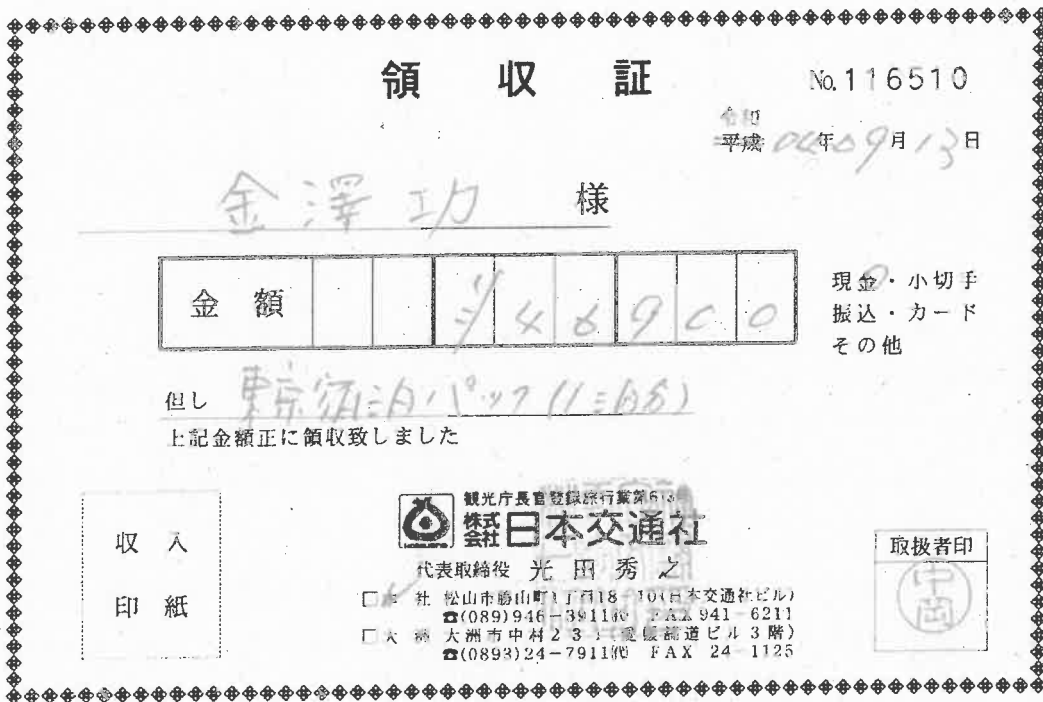 領収証
No.116510
令和
平成 04年09月13日
金澤功 様
金額 ¥46900
現金・小切手
振込・カード
その他
但し 東京宿泊パック(1泊分)
上記金額正に領収致しました
収入
印紙
観光庁長官登録旅行業第613
株式会社 日本交通社
代表取締役 光田秀之
□本社 松山市勝山町1丁目18-10(日本交通社ビル)
☎(089)946-3911㈹ FAX 941-6211
□大洲 大洲市中村231(愛媛舗道ビル3階)
☎(0893)24-7911㈹ FAX 24-1125
取扱者印
中岡